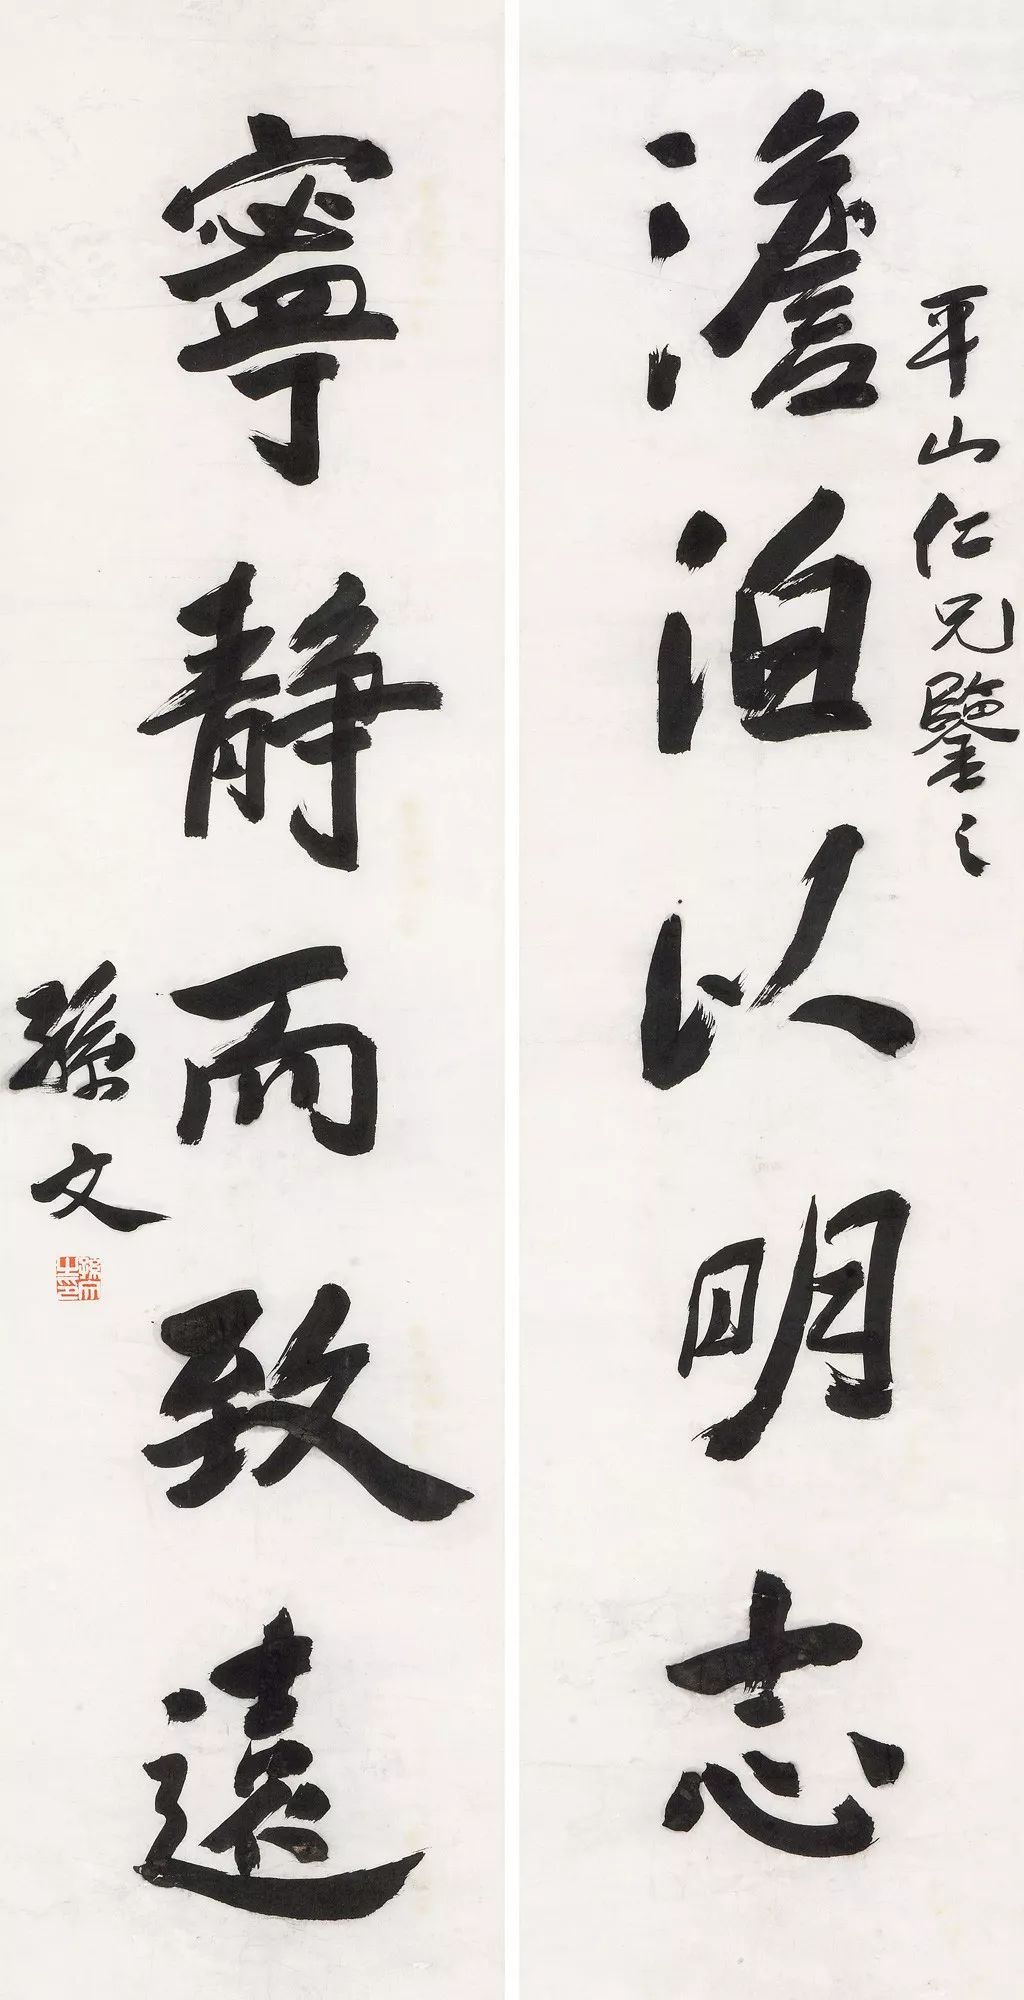 平山仁兄鑒之
澹泊以明志
寧靜而致遠
孫文
孫文之印